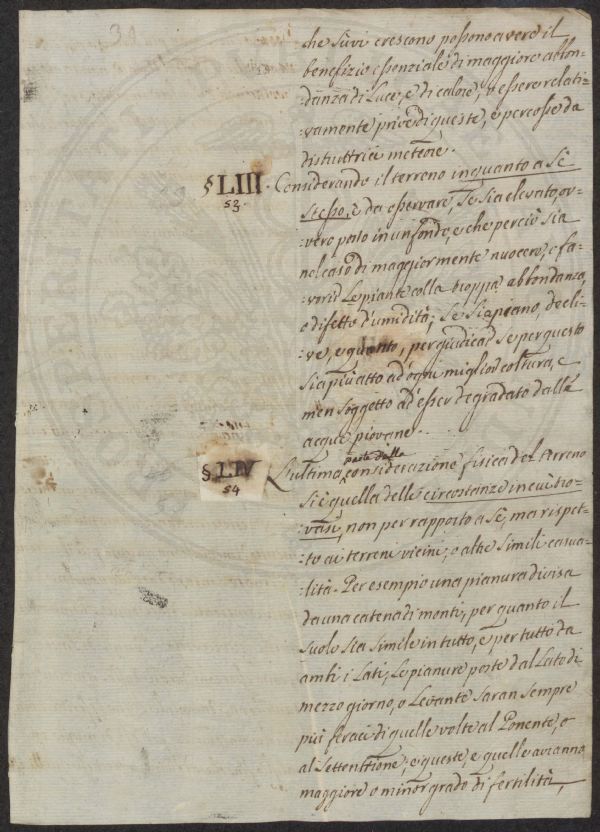 che sùvi crescono possono avere il
benefizio essenziale di maggiore abbon-
:danza di Luce, e di calore, o essere relati-
:vamente prive di queste, e percosse da
distruttrici meteore.
§ LIII. Considerando il terreno inquanto a Sè
53.
stesso, è da osservare, Se sia elevato, ov-
vero posto in un fondo, e che perciò sia
nel caso di maggiormente nuocere, o fa-
:vorir Le piante colla troppa abbondanza,
o difetto d'umidità; Se sia piano, decli-
:ve, e quanto, per giudicar se per questo
sia più atto ad ogni miglior coltura, e
men soggetto ad esser degradato dalle
acque piovane.
parte della
§ LIV L'ultima considerazione fisica del terreno
54
si è quella delle circostanze in cui tro-
:vasi, non per rapporto a Sè, ma rispet-
:to ai terreni vicini, o altre simili casua-
:lità. Per esempio una pianura divisa
da una catena di monti, per quanto il
suolo sia simile in tutto, e per tutto da
ambi i Lati, Le pianure poste dal Lato di
mezzo giorno, o Levante saran sempre
più feraci di quelle volte al Ponente, o
al Settentrione; e queste, e quelle avranno
maggiore o minor grado di fertilità,